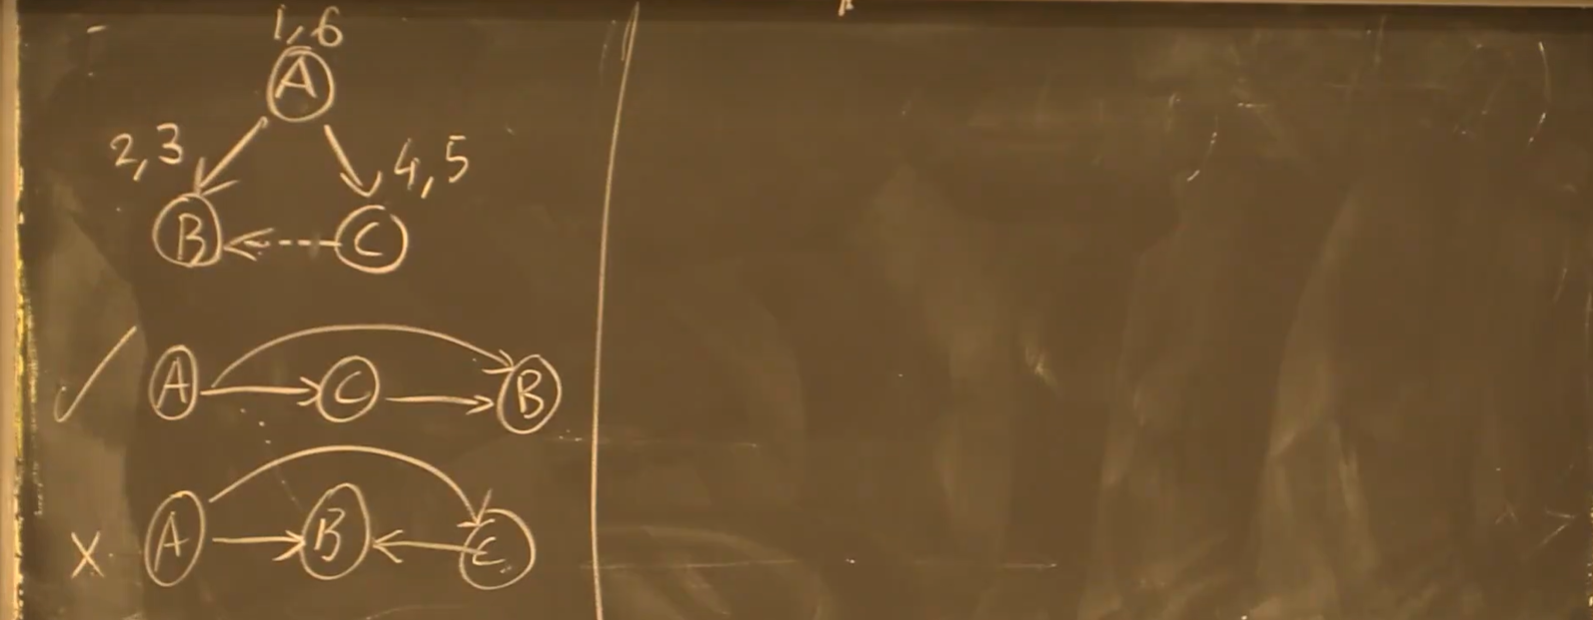 1,6
A
2,3 4,5
B C
A C B
X A B C